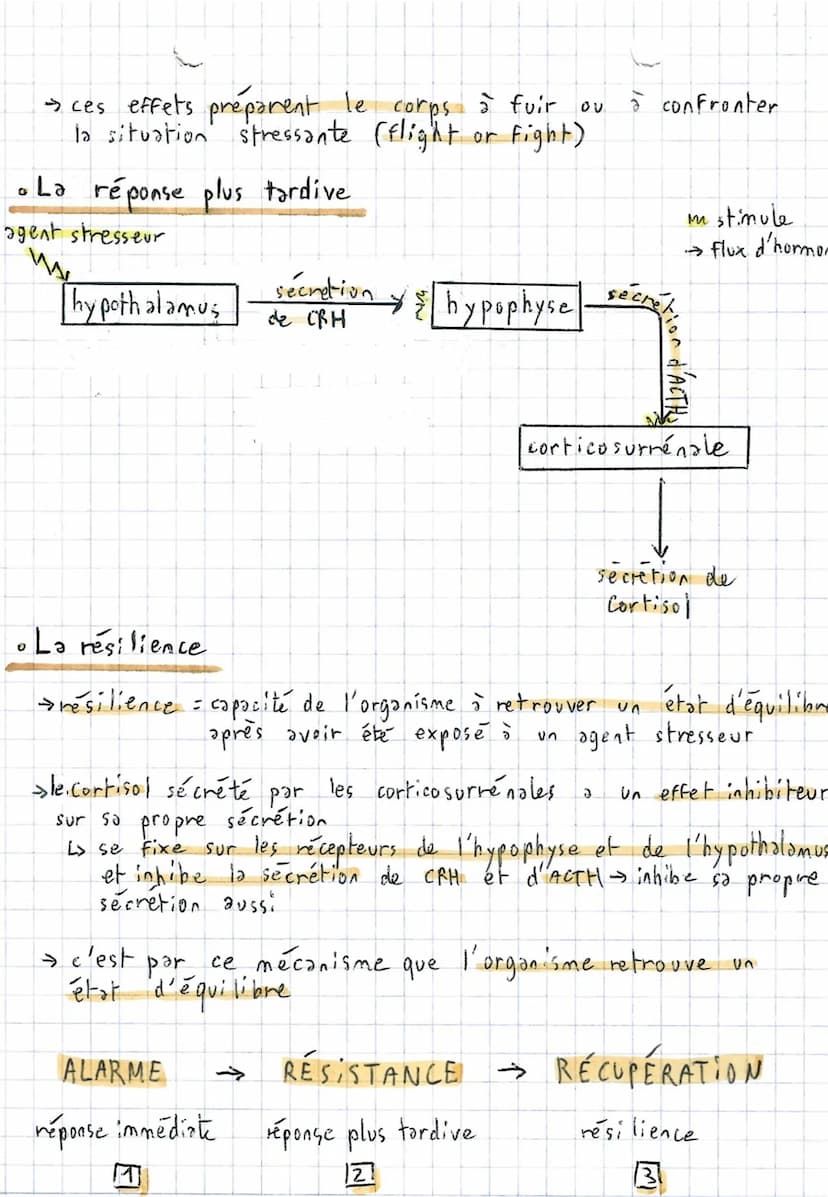 → ces effets préparent le corps à fuir ou à confronter
la situation stressante (flight or fight)
• La réponse plus tardive
agent stresseur
stimule
→ flux d'hormon
hypothalamus
sécrétion
de CRH
hypophyse
sécrétion d'ACTH
corticosurrénale
sécrétion de
cortisol
• La résilience
→ résilience = capacité de l'organisme à retrouver un état d'équilibre
après avoir été exposé à un agent stresseur
→ le cortisol sécrété par les corticosurrénales a un effet inhibiteur
sur sa propre sécrétion
↳ se fixe sur les récepteurs de l'hypophyse et de l'hypothalamus
et inhibe la sécrétion de CRH et d'ACTH → inhibe sa propre
sécrétion aussi
→ c'est par ce mécanisme que l'organisme retrouve un
état d'équilibre
ALARME → RÉSISTANCE → RÉCUPÉRATION
réponse immédiate réponse plus tardive résilience
1 2 3